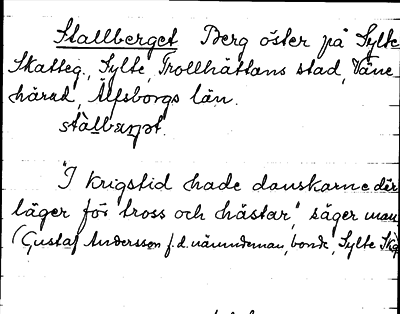 Stallberget Berg öster på Sylte
Skatteg., Sylte, Trollhättans stad, Väne
härad, Älfsborgs län.
"I krigstid hade danskarne där
läger för tross och hästar," säger man
(Gustaf Andersson f.d. nämndeman, bonde, Sylte Skg